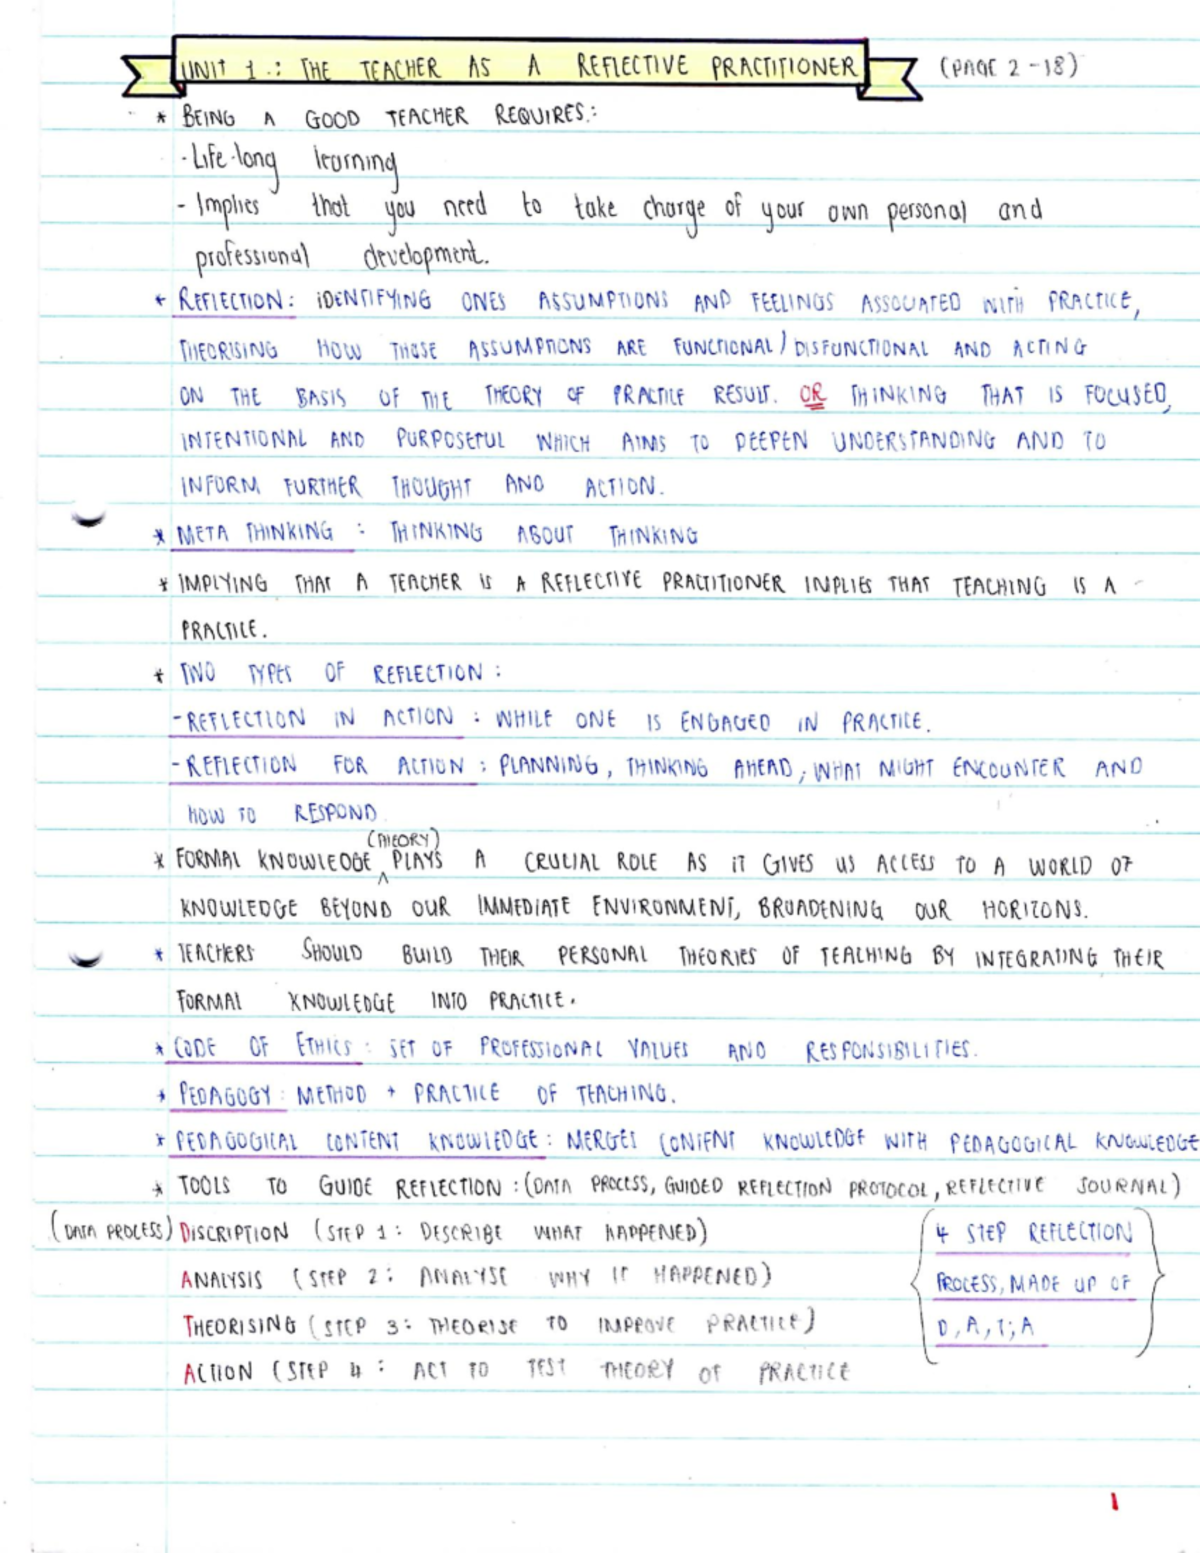 UNIT 1.: THE TEACHER AS A REFLECTIVE PRACTITIONER (PAGE 2-18)
* BEING A GOOD TEACHER REQUIRES.:
- Life-long learning
- Implies that you need to take charge of your own personal and
professional development.
* REFLECTION: IDENTIFYING ONES ASSUMPTIONS AND FEELINGS ASSOCIATED WITH PRACTICE,
THEORISING HOW THOSE ASSUMPTIONS ARE FUNCTIONAL/DISFUNCTIONAL AND ACTING
ON THE BASIS OF THE THEORY OF PRACTICE RESULT. OR THINKING THAT IS FOCUSED,
INTENTIONAL AND PURPOSEFUL WHICH AIMS TO DEEPEN UNDERSTANDING AND TO
INFORM FURTHER THOUGHT AND ACTION.
* META THINKING : THINKING ABOUT THINKING
* IMPLYING THAT A TEACHER IS A REFLECTIVE PRACTITIONER IMPLIES THAT TEACHING IS A
PRACTICE.
* TWO TYPES OF REFLECTION :
- REFLECTION IN ACTION : WHILE ONE IS ENGAGED IN PRACTICE.
- REFLECTION FOR ACTION : PLANNING, THINKING AHEAD, WHAT MIGHT ENCOUNTER AND
HOW TO RESPOND
(THEORY)
* FORMAL KNOWLEDGE ^ PLAYS A CRUCIAL ROLE AS IT GIVES US ACCESS TO A WORLD OF
KNOWLEDGE BEYOND OUR IMMEDIATE ENVIRONMENT, BROADENING OUR HORIZONS.
* TEACHERS SHOULD BUILD THEIR PERSONAL THEORIES OF TEACHING BY INTEGRATING THEIR
FORMAL KNOWLEDGE INTO PRACTICE.
* CODE OF ETHICS : SET OF PROFESSIONAL VALUES AND RESPONSIBILITIES.
* PEDAGOGY : METHOD + PRACTICE OF TEACHING.
* PEDAGOGICAL CONTENT KNOWLEDGE : MERGES CONTENT KNOWLEDGE WITH PEDAGOGICAL KNOWLEDGE
* TOOLS TO GUIDE REFLECTION : (DATA PROCESS, GUIDED REFLECTION PROTOCOL, REFLECTIVE JOURNAL)
(DATA PROCESS) DISCRIPTION (STEP 1 : DESCRIBE WHAT HAPPENED)
ANALYSIS (STEP 2 : ANALYSE WHY IT HAPPENED)
THEORISING (STEP 3 : THEORISE TO IMPROVE PRACTICE)
ACTION (STEP 4 : ACT TO TEST THEORY OF PRACTICE
4 STEP REFLECTION
PROCESS, MADE UP OF
D, A, T; A
1